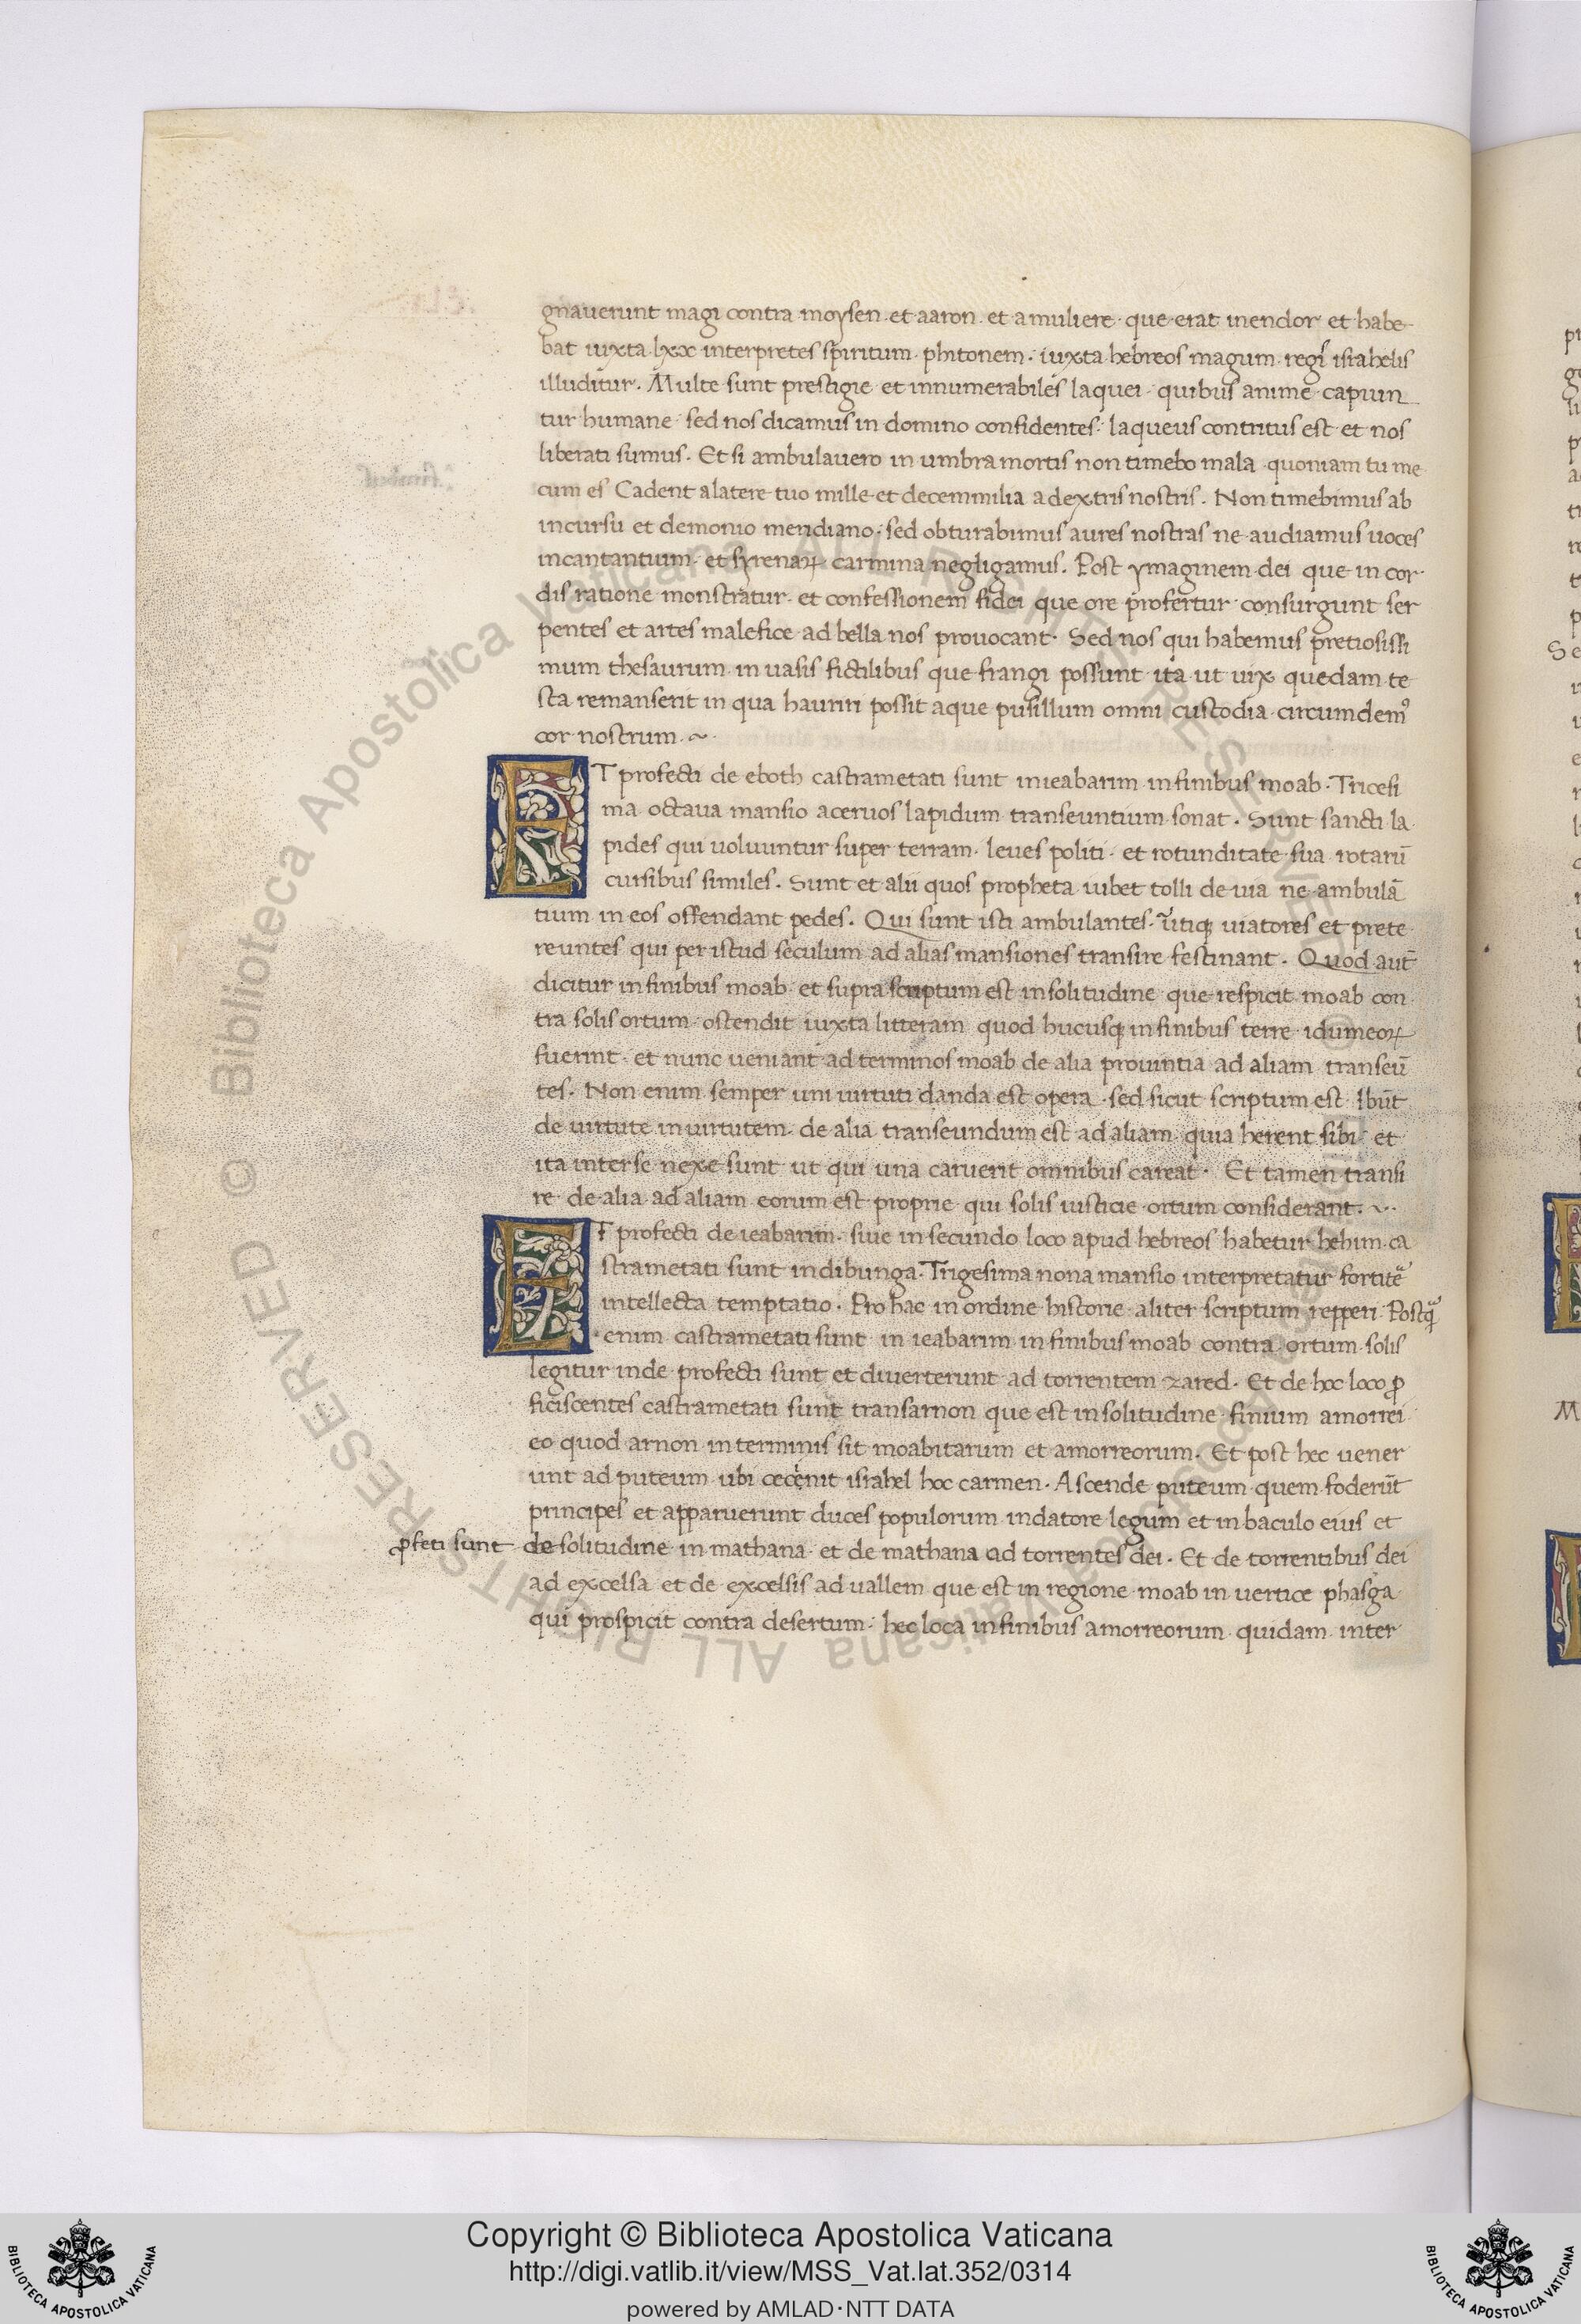 gnauerunt magi contra moysen. et aaron. et a muliere. que erat in endor et habe-
bat iuxta lxx interpretes spiritum phitonem. iuxta hebreos magum. regi israhelis
illuditur. Multe sunt prestigie et innumerabiles laquei. quibus anime capiun
tur humane. sed nos dicamus in domino confidentes. laqueus contritus est et nos
liberati sumus. Et si ambulauero in umbra mortis non timebo mala. quoniam tu me
cum es Cadent a latere tuo mille et decem milia a dextris nostris. Non timebimus ab
incursu et demonio meridiano. sed obturabimus aures nostras ne audiamus uoces
incantantium. et syrenaꝝ carmina negligamus. Post ymaginem dei que in cor
dis ratione monstratur. et confessionem fidei que ore profertur consurgunt ser
pentes et artes malefice ad bella nos prouocant. Sed nos qui habemus pretiosissi
mum thesaurum in uasis fictilibus que frangi possunt ita ut uix quedam te
sta remanserit in qua hauriri possit aque pusillum omni custodia circumdemꝰ
cor nostrum. ~
ET profecti de eboth castrametati sunt in ieabarim in finibus moab. Tricesi
ma octaua mansio aceruos lapidum transeuntium sonat. Sunt sancti la
pides qui uoluuntur super terram. leues politi. et rotunditate sua rotarū
cursibus similes. Sunt et alii quos propheta iubet tolli de uia ne ambulā
tium in eos offendant pedes. Qui sunt isti ambulantes. utiqꝫ uiatores et prete
reuntes qui per istud seculum ad alias mansiones transire festinant. Quod aut̄
dicitur in finibus moab. et supra scriptum est in solitudine que respicit moab con
tra solis ortum. ostendit iuxta litteram quod hucusqꝫ in finibus terre idumeoꝝ
fuerint. et nunc ueniant ad terminos moab de alia prouintia ad aliam transeū
tes. Non enim semper uni uirtuti danda est opera. sed sicut scriptum est. Ibūt
de uirtute in uirtutem. de alia transeundum est ad aliam quia herent sibi. et
ita inter se nexe sunt ut qui una caruerit omnibus careat. Et tamen transi
re de alia ad aliam eorum est proprie qui solis iusticie ortum considerant. ~
ET profecti de ieabarim. siue in secundo loco apud hebreos habetur hehim. ca
strametati sunt in dibunga. Trigesima nona mansio interpretatur fortit̄
intellecta temptatio. Pro hac in ordine historie aliter scriptum repperi. Postq̄
enim castrametati sunt in ieabarim in finibus moab contra ortum solis
legitur inde profecti sunt et diuerterunt ad torrentem zared. Et de hoc loco ꝓ
ficiscentes castrametati sunt trans arnon que est in solitudine finium amorrei
eo quod arnon in terminis sit moabitarum et amorreorum. Et post hec uener
unt ad puteum ubi cecenit israhel hoc carmen. Ascende puteum quem foderūt
principes et apparuerunt duces populorum in datore legum et in baculo eius et
ꝓfeti sunt de solitudine in mathana. et de mathana ad torrentes dei. Et de torrentibus dei
ad excelsa et de excelsis ad uallem que est in regione moab in uertice phasga
qui prospicit contra desertum. hec loca in finibus amorreorum quidam inter
Copyright © Biblioteca Apostolica Vaticana
http://digi.vatlib.it/view/MSS_Vat.lat.352/0314
powered by AMLAD·NTT DATA
BIBLIOTECA APOSTOLICA VATICANA
BIBLIOTECA APOSTOLICA VATICANA